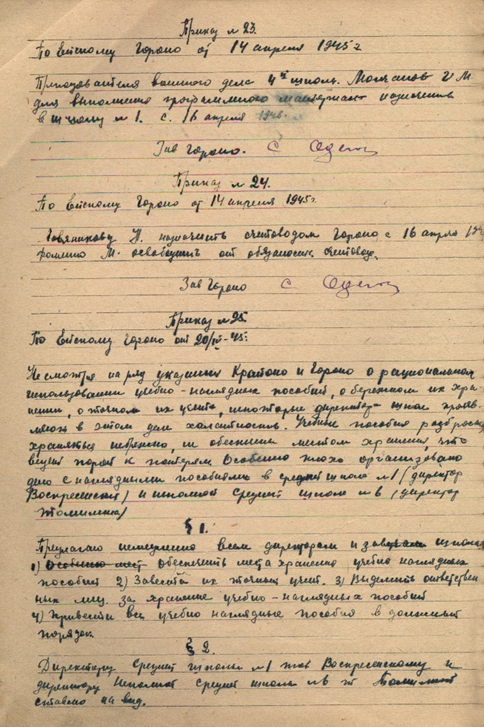 Приказ № 23.
По Ейскому Гороно от 14 апреля 1945 г
Преподавателя военного дела 4й школы. Молчанов И М.
для выполнения программного материала назначить
в школу № 1. с. 16 апреля
Зав Гороно. С
Приказ № 24.
По Ейскому Гороно от 14 апреля 1945 г.
Н. назначить счетоводом Гороно с 16 апреля
Фомину М. освободить от обязанности счетовода.
Зав Гороно С
Приказ № 25
По Ейскому Гороно от 20/IV-45г.
Несмотря на ряд указаний Крайоно и Гороно о рациональном
использовании учебно-наглядных пособий, о бережном их хра-
нении, о точном их учете, некоторые директора школ прояв-
ляют в этом деле халатность. Учебные пособия разбросаны
хранятся небрежно, не обеспечены местом хранения, что
ведет порой к потерям Особенно плохо организовано
дело с наглядными пособиями в средней школе №1 (директор
Воскресенский) и неполной средней школе №6 (директор
§ 1.
Предлагаю немедленно всем директорам и завучам школ
1) Особенно мест обеспечить места хранения учебно наглядных
пособий 2) Завести их точный учет. 3) Выделить ответствен-
ных лиц за хранение учебно-наглядных пособий
4) Привести все учебно наглядные пособия в должный
порядок
§ 2.
Директору Средней школы №1 тов Воскресенскому и
директору Неполной средней школы №6 т
ставлю на вид.